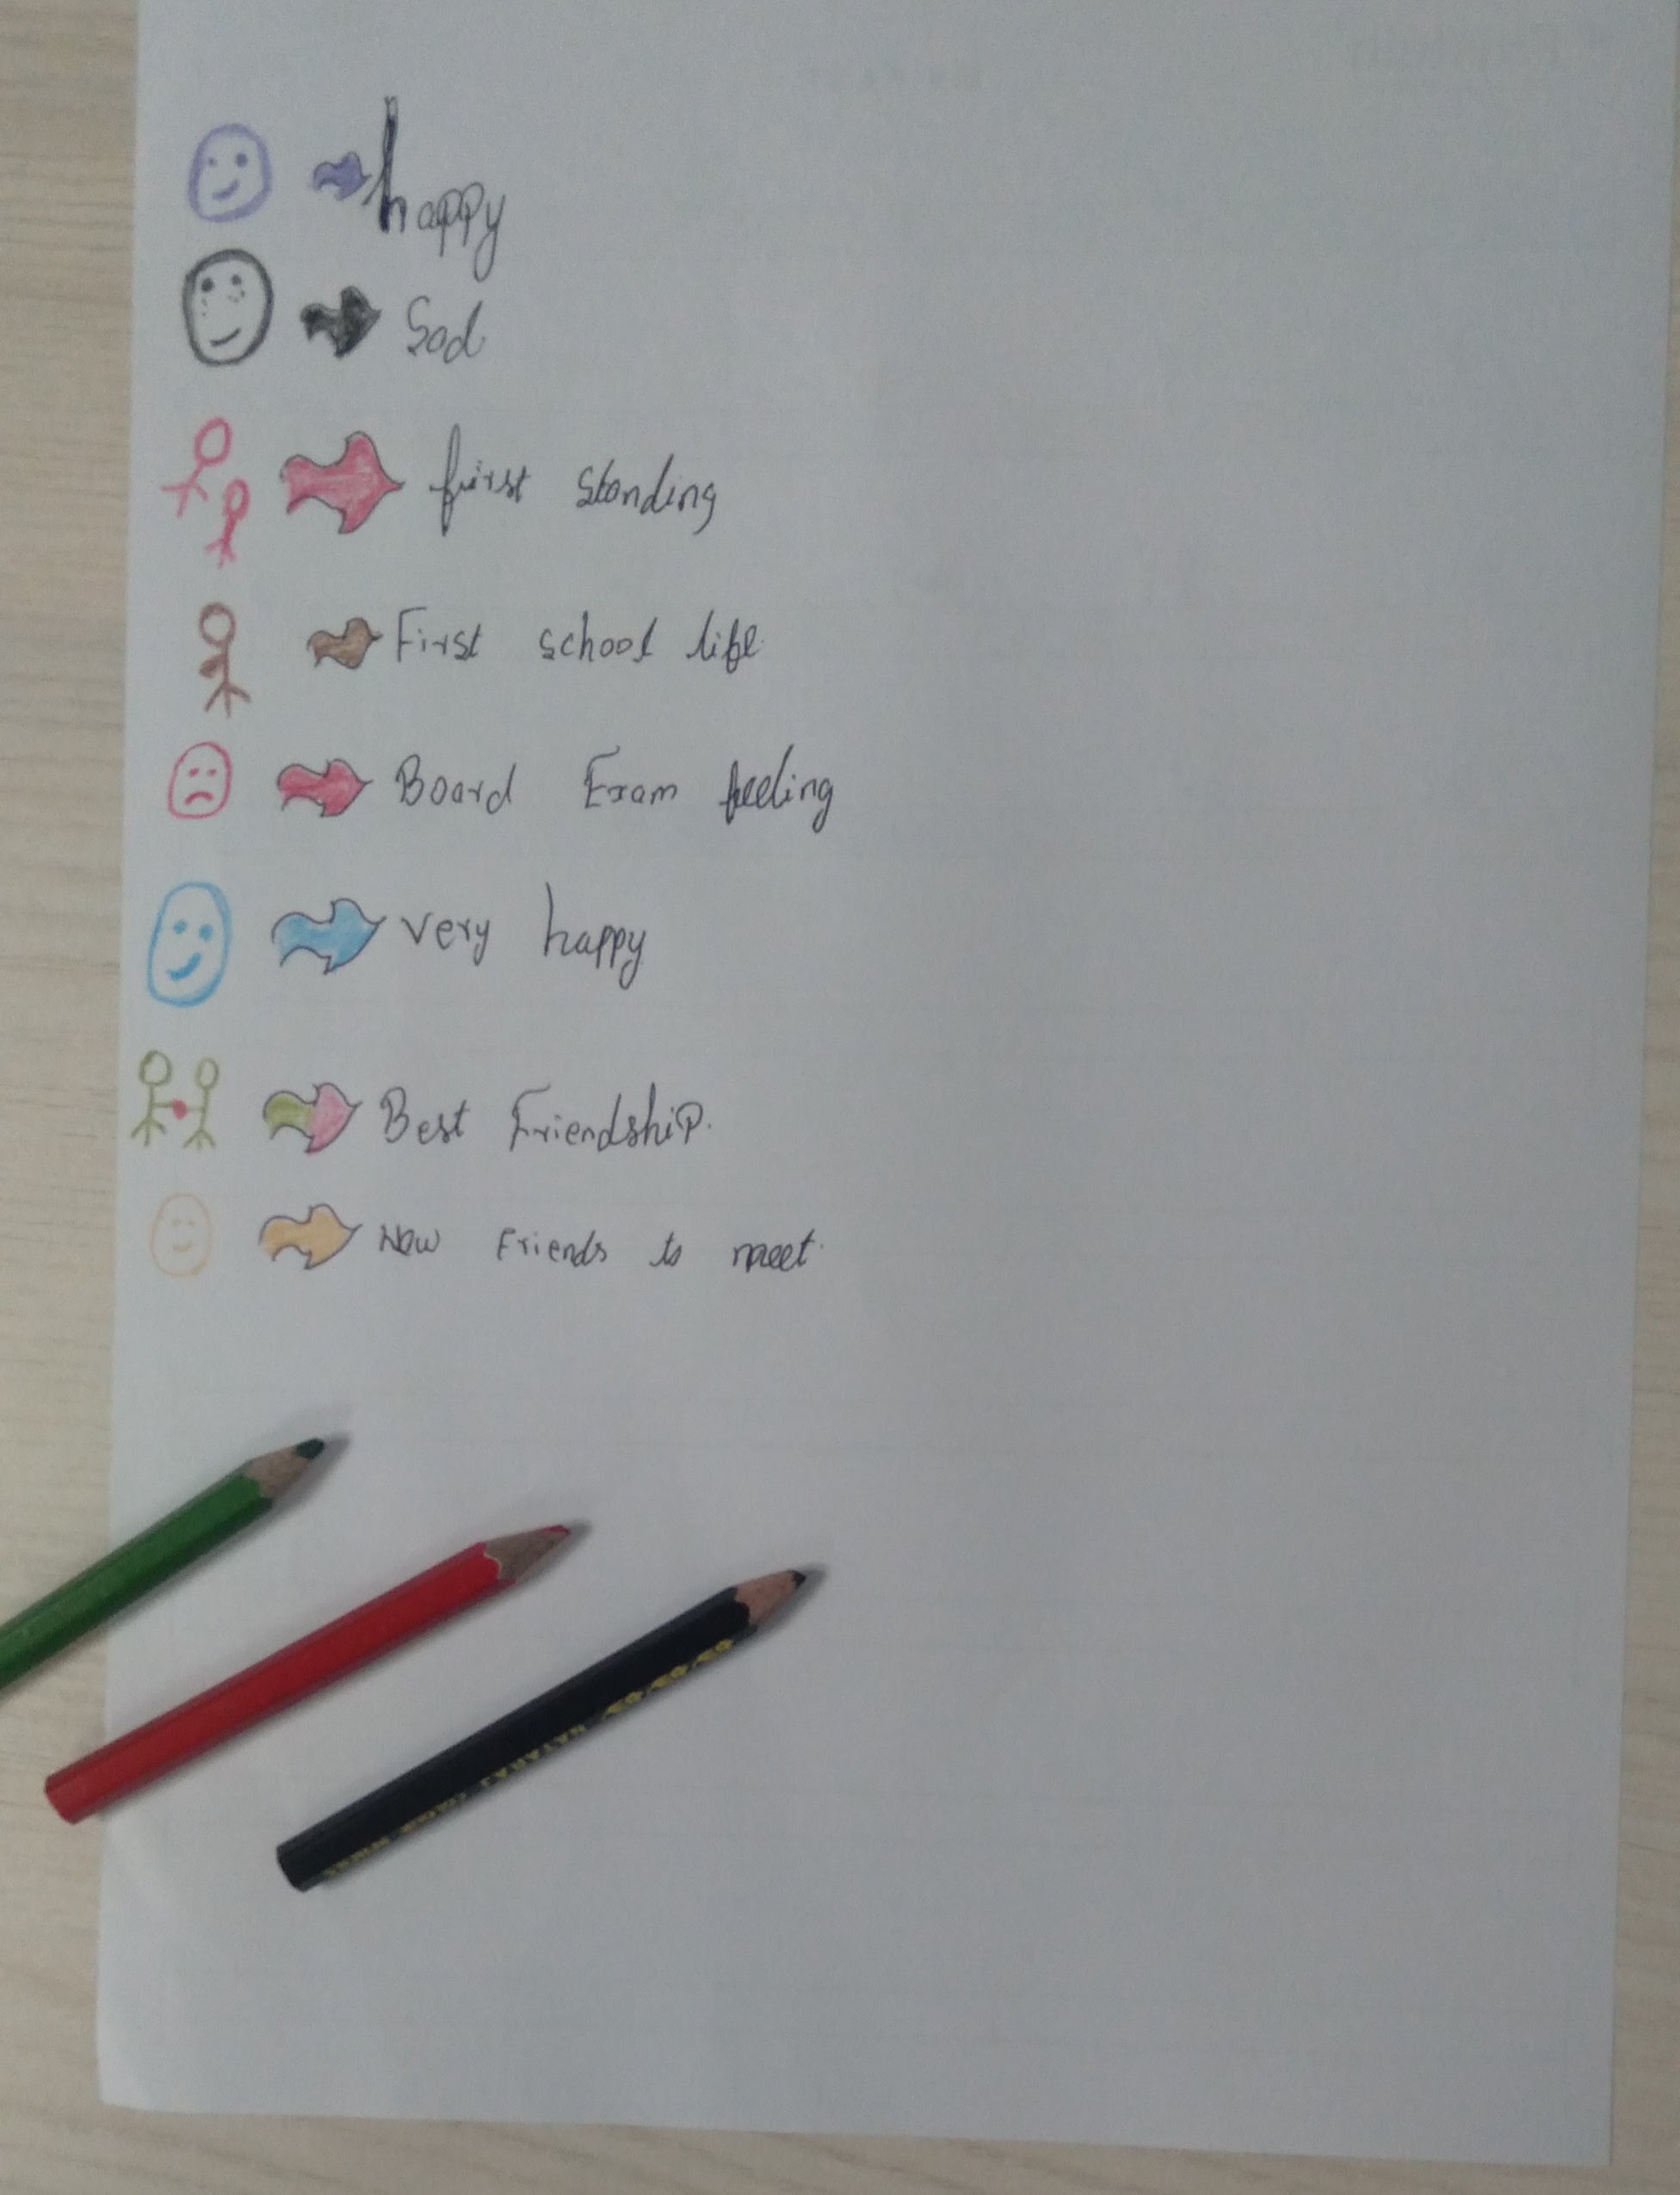 happy
Sad
first standing
First school life
Board Exam feeling
very happy
Best Friendship.
New Friends to meet.
NATARAJ COLOUR